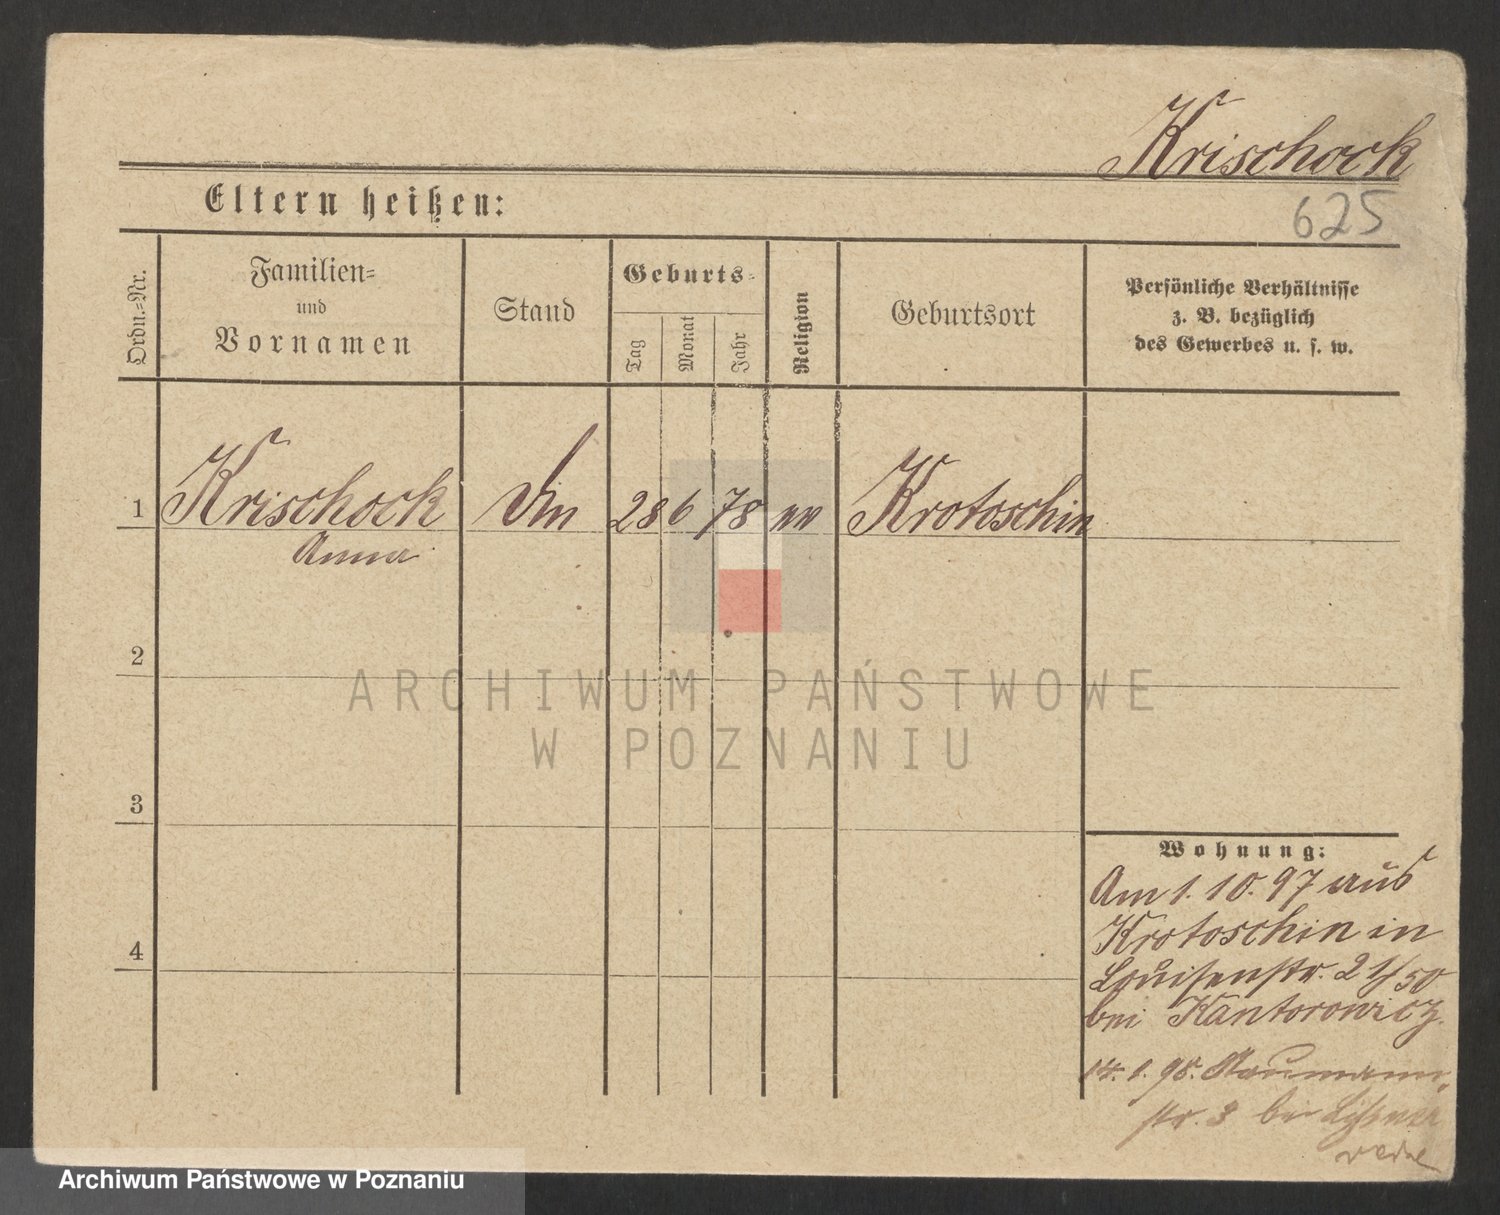 Krischock
625
Eltern heißen:
Ordn.-Nr.
Familien-
und
Vornamen
Stand
Geburts-
Tag
Monat
Jahr
Religion
Geburtsort
Persönliche Verhältnisse
z. B. bezüglich
des Gewerbes u. s. w.
1
Krischock
Anna
28 6 78
Krotoschin
2
ARCHIWUM PAŃSTWOWE
W POZNANIU
3
4
Wohnung:
Am 1. 10. 97 aus
Krotoschin in
Louisenstr. 21/50
bei Kantorowicz.
14. 1. 98. Naumann
str. 3 bei
Archiwum Państwowe w Poznaniu